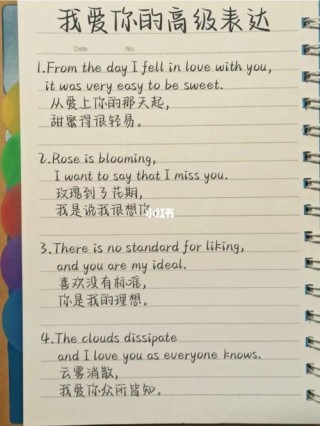 我爱你的高级表达
Date. No.
1.From the day I fell in love with you,
it was very easy to be sweet.
从爱上你的那天起,
甜蜜得很轻易。
2.Rose is blooming,
I want to say that I miss you.
玫瑰到了花期,
我是说我很想你
小红书
3.There is no standard for liking,
and you are my ideal.
喜欢没有标准,
你是我的理想。
4.The clouds dissipate
and I love you as everyone knows.
云雾消散,
我爱你众所皆知。